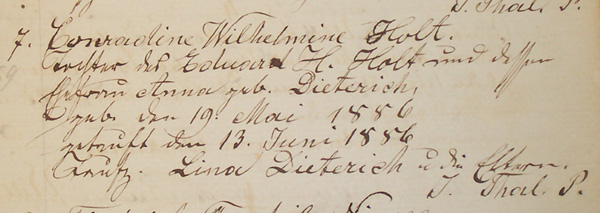 J. Thal. P.
7. Conradine Wilhelmine Holt.
Tochter des Eduard H. Holt und dessen
Ehefrau Anna geb. Dieterich,
geb. den 19. Mai 1886
getauft den 13. Juni 1886
Taufz. Lina Dieterich u. die Eltern.
J. Thal. P.